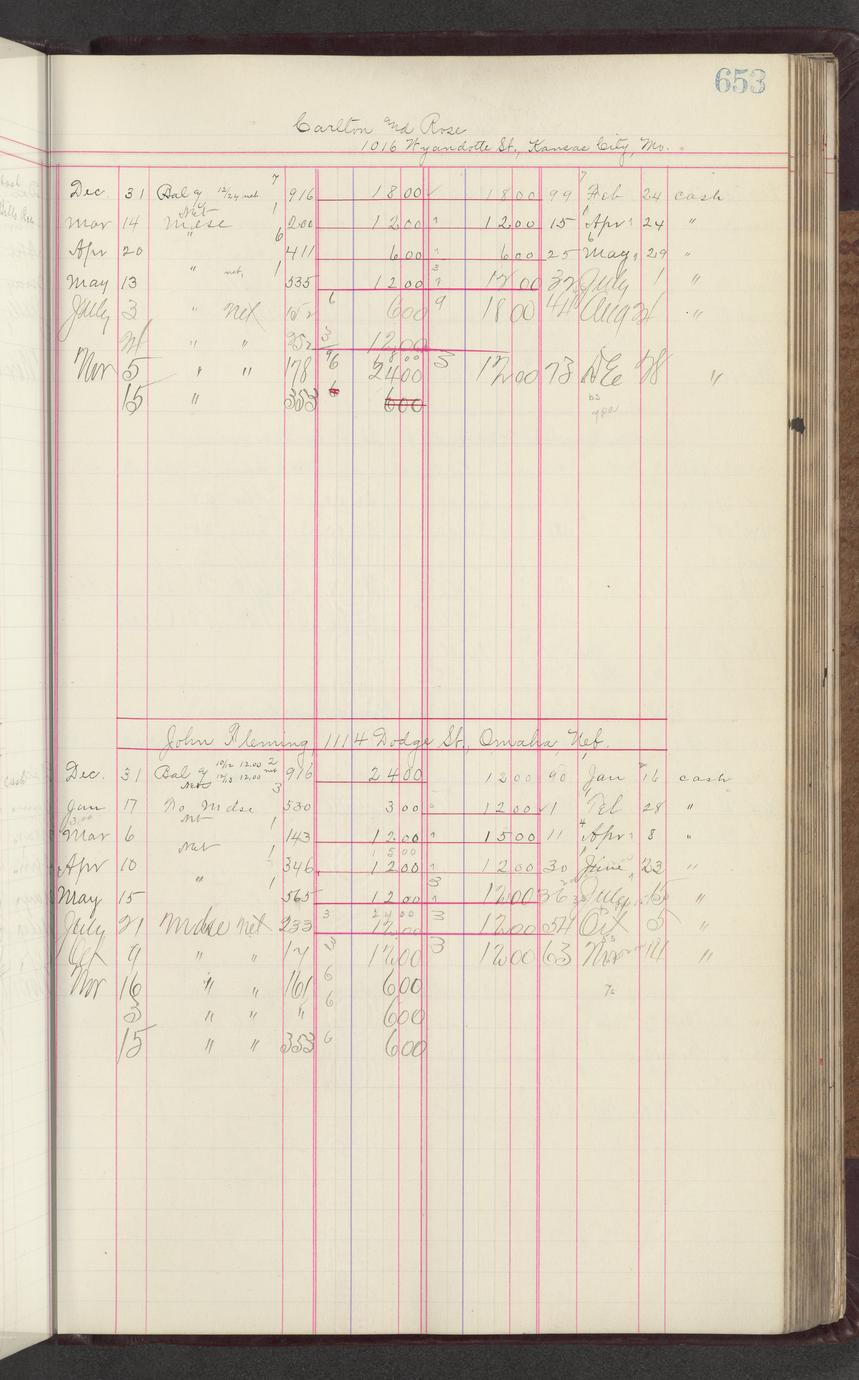 653
Carlton and Rose
1016 Wyandotte St., Kansas City, Mo.
Dec. 31 Bal 12/24 net 7 916 18 00 ✓ 18 00 99 Feb 24 cash
Mar 14 Net Mdse 1 200 12 00 " 12 00 15 Apr 24 "
Apr 20 " 6 411 6 00 " 6 00 25 May 29 "
May 13 " net, 1 535 12 00 3 " 12 00 32 July 1 "
July 3 " net 6 6 00 9 18 00 Aug "
21 " " 352 3 12 00
18 00
Nov 5 " " 178 6 24 00 3 12 00 73 28 "
15 " 353 6 6 00
John Fleming, 1114 Dodge St., Omaha, Neb.
Dec. 31 Bal 10/2 12.00 12/3 12.00 net 2 916 24 00 12 00 90 Jan 16 cash
Jan 17 Net To Mdse 3 530 3 00 " 12 00 1 Feb 28 "
Mar 6 Net 1 143 12 00 " 15 00 11 Apr 8 "
15 00
Apr 10 Net 1 346 12 00 " 12 00 30 June 23 "
May 15 " 1 565 12 00 3 12 00 36 July 15 "
24 00
July 21 Mdse net 233 3 12 00 3 12 00 54 Oct 5 "
Oct 9 " " 17 3 12 00 3 12 00 63 Nov 14 "
Nov 16 " " 161 6 6 00
3 " " " 6 6 00
15 " " 353 6 6 00